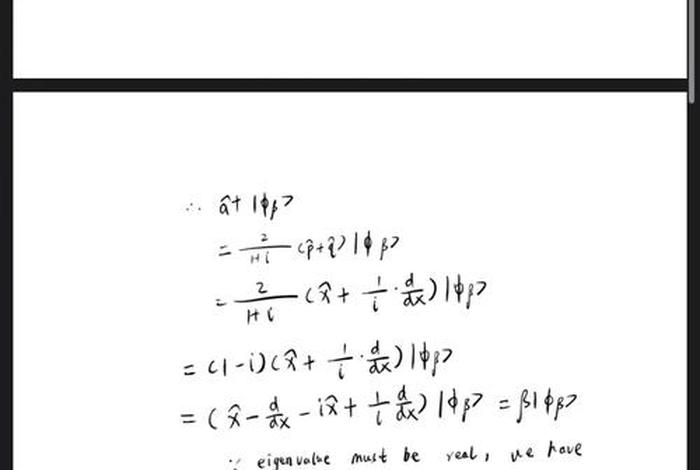 ∴ â† |ϕβ>
= 2/(1+i) (p̂+q̂) |ϕβ>
= 2/(1+i) (x̂ + 1/i · d/dx) |ϕβ>
= (1-i)(x̂ + 1/i · d/dx) |ϕβ>
= (x̂ - d/dx - ix̂ + 1/i d/dx) |ϕβ> = β|ϕβ>
∵ eigenvalue must be real, we have